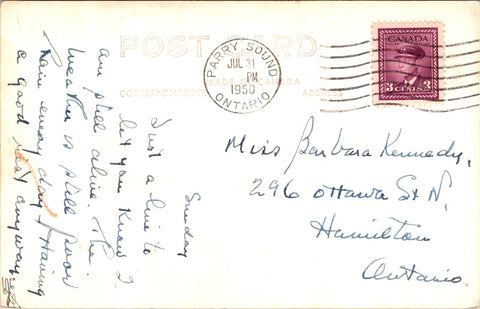 POST CARD
MADE IN CANADA
CORRESPONDENCE
ADDRESS
PARRY SOUND
JUL 31
PM
1950
ONTARIO
CANADA
3 CENTS 3
Sunday
Just a line to
let you know I
am still alive. The
weather is still poor
Rain every day. Having
a good rest anyway.
Miss Barbara Kennedy,
296 Ottawa St N,
Hamilton
Ontario.